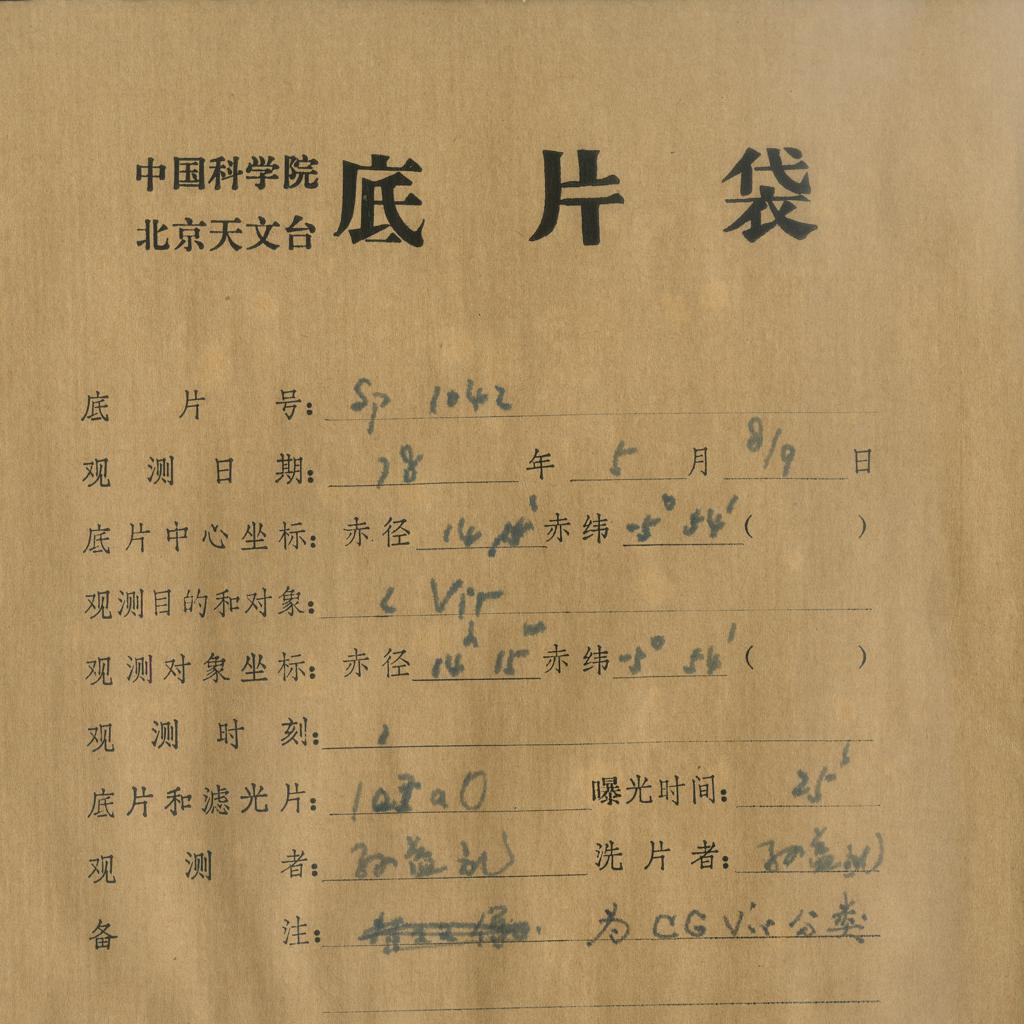 中国科学院
北京天文台
底片袋
底片号: Sp 1042
观测日期: 78 年 5 月 8/9 日
底片中心坐标: 赤径 14 赤纬 -5° 54' ( )
观测目的和对象: ι Vir
观测对象坐标: 赤径 14h 15m 赤纬 -5° 54' ( )
观测时刻:
底片和滤光片: 103aO 曝光时间: 25'
观测者: 孙益礼 洗片者: 孙益礼
备注: 为 CG Vir 分类